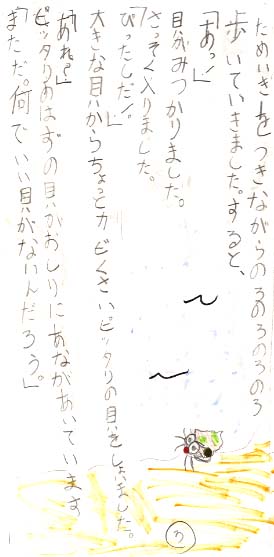 ためいきをつきながらのろのろのろのろ
歩いていきました。すると、
「あっ!」
貝がみつかりました。
さっそく入りました。
「ぴったしだ!」
大きな貝からちょっとカビくさいピッタリの貝をしょいました。
「あれ?」
ピッタリのはずの貝がおしりにあながあいています
「まただ。何でいい貝がないんだろう。」